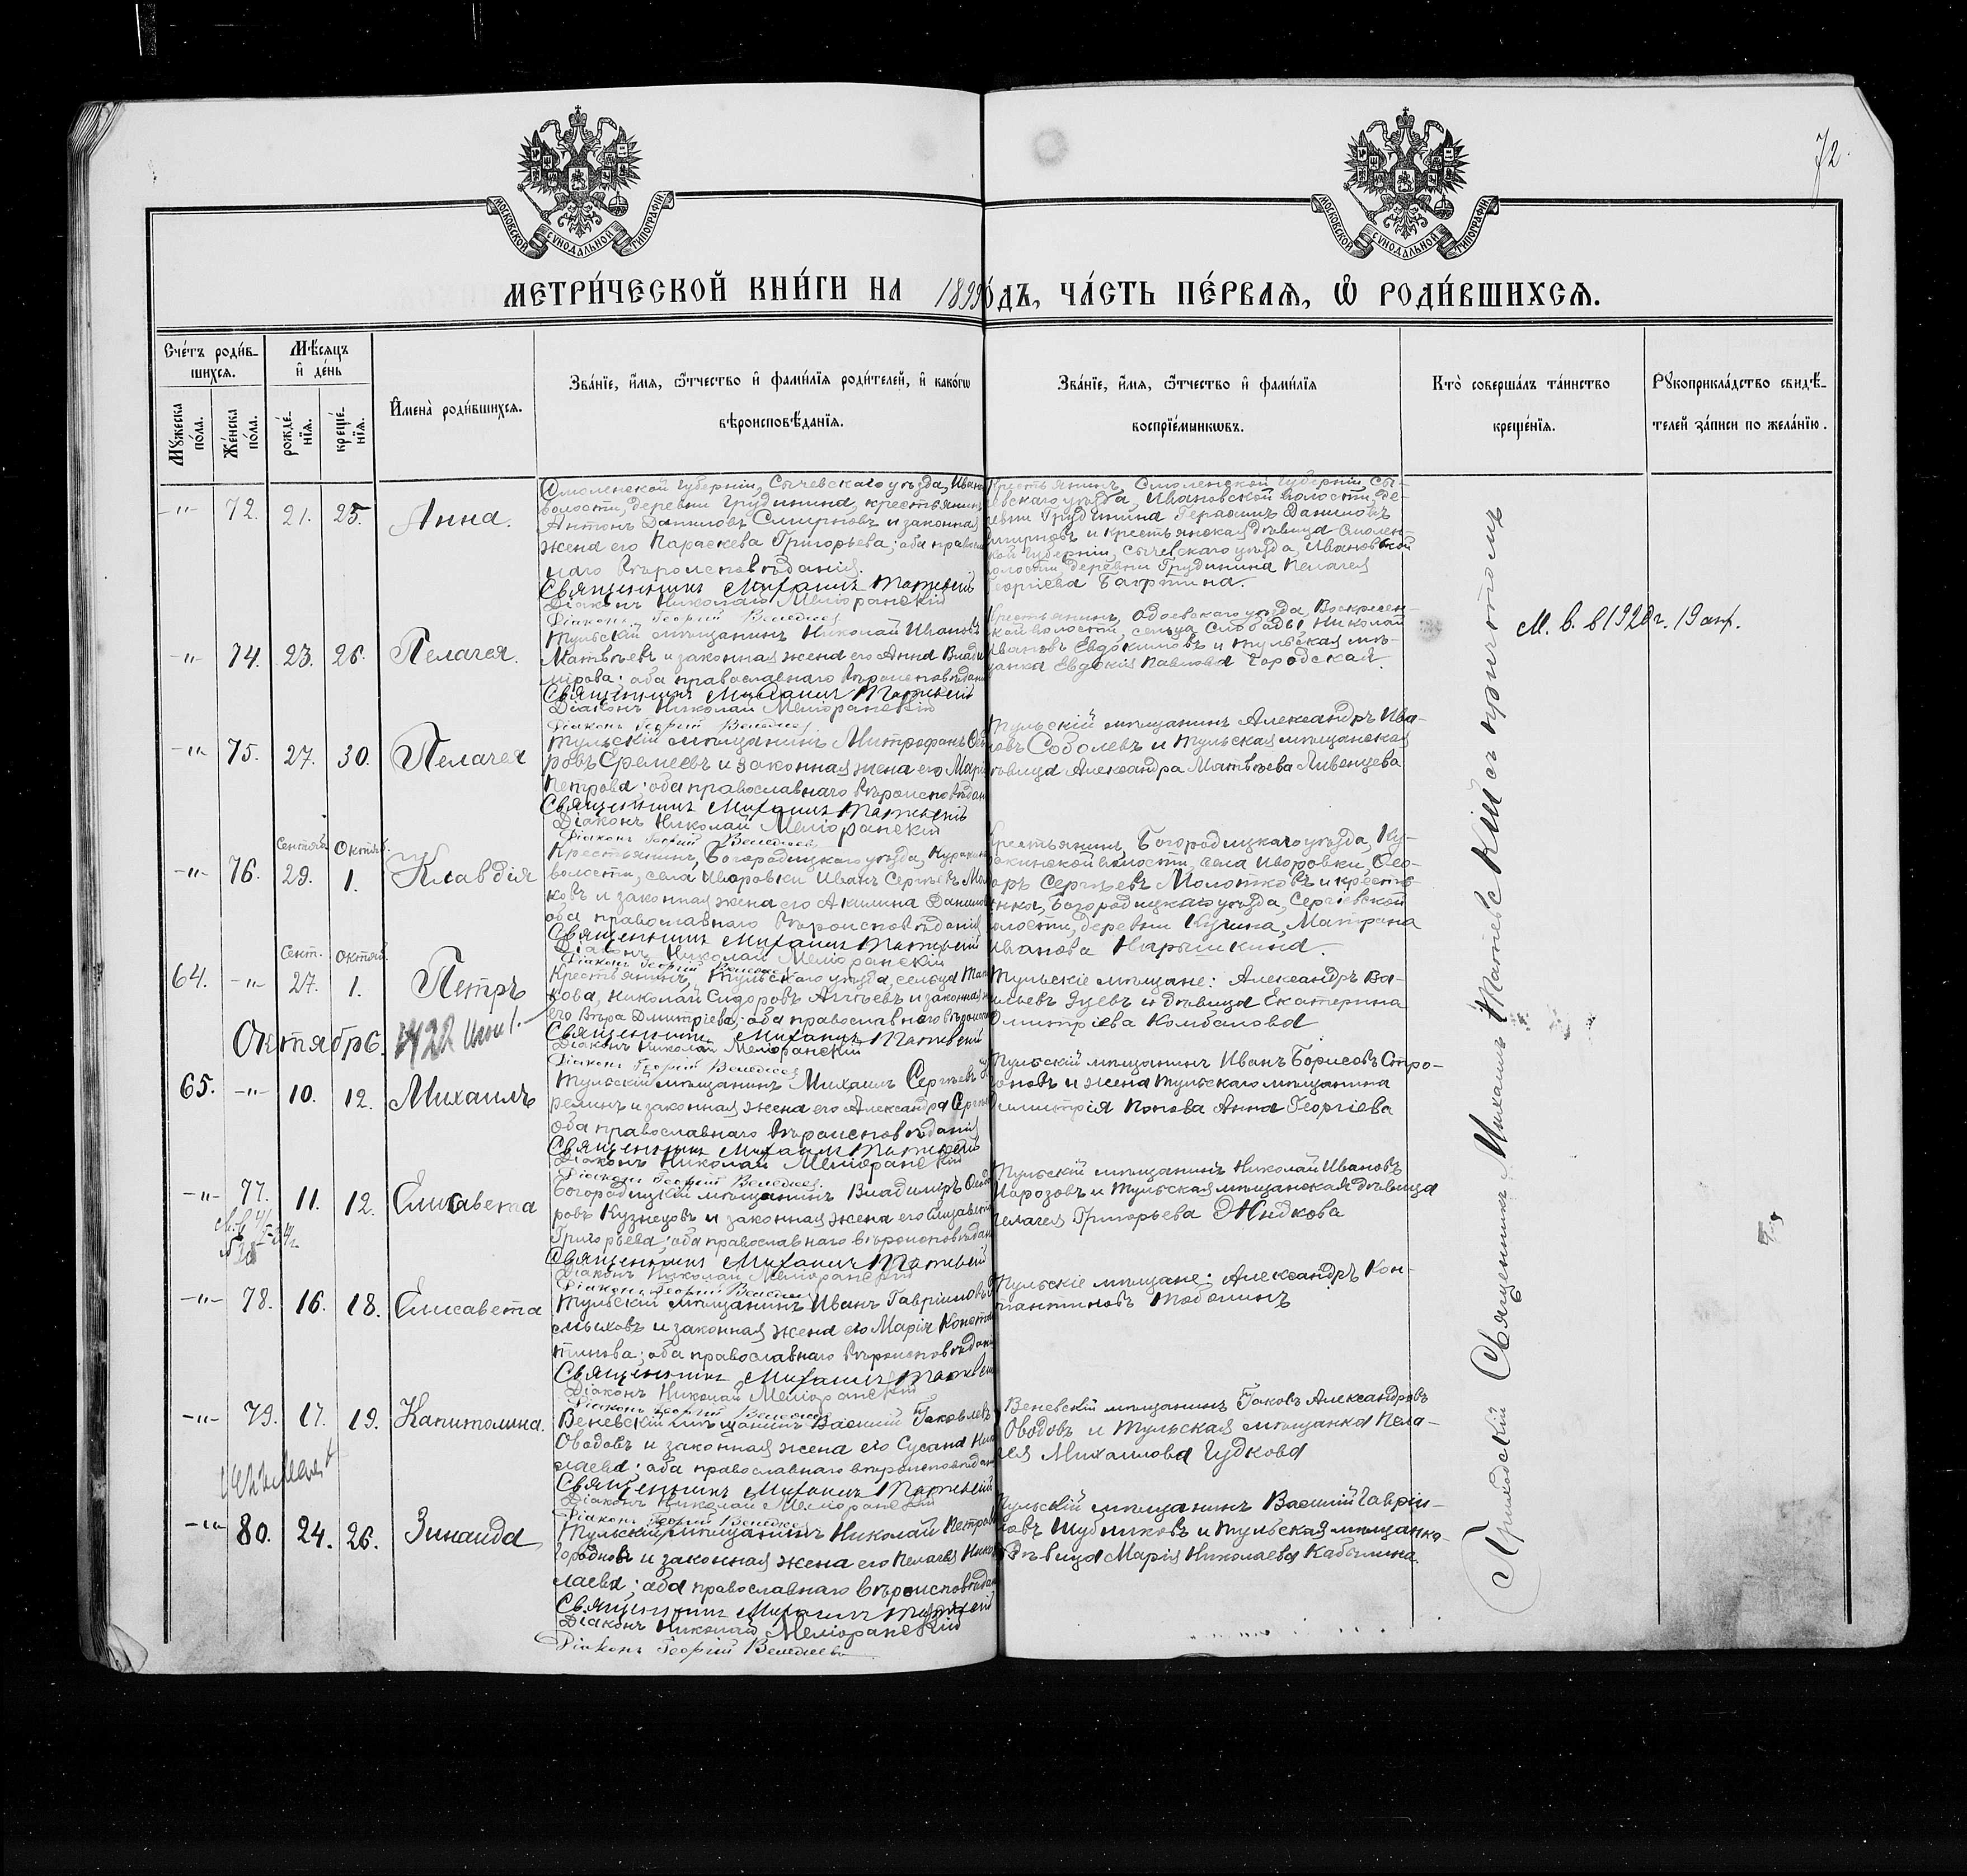 72.
МОСКОВСКОЙ СУНОДАЛЬНОЙ ТИПОГРАФІИ
МОСКОВСКОЙ СУНОДАЛЬНОЙ ТИПОГРАФІИ
МЕТРИ́ЧЕСКОЙ КНИ́ГИ НА 1899 ГО́ДЪ, ЧА́СТЬ ПЕ́РВАѦ, Ѡ҆ РОДИ́ВШИХСѦ.
Сче́тъ роди́в-
шихсѧ.
Мꙋ́жеска по́ла.
Же́нска по́ла.
Мѣ́сѧцъ и҆ де́нь
рожде́-нїѧ.
креще́-нїѧ.
И҆мена̀ роди́вшихсѧ.
Зва́нїе, и҆́мѧ, ѻ҆́тчество и҆ фами́лїѧ роди́телей, и҆ како́гѡ
вѣроисповѣ́данїѧ.
Зва́нїе, и҆́мѧ, ѻ҆́тчество и҆ фами́лїѧ
воспрїе́мникѡвъ.
Кто̀ соверша́лъ та́инство
креще́нїѧ.
Рꙋкоприкла́дство свидѣ́-
телей за́писи по жела́нїю.
-"- 72. 21. 25. Анна.
Смоленской губерніи, Сычевскаго уѣзда, Иван
волости, деревни Грудинина, крестьянинъ
Антонъ Даниловъ Смирновъ и законная
жена его Параскева Григорьева; оба правос
наго вѣроисповѣданія.
Священникъ Михаилъ
Діаконъ Николай Меліоранскій
Діаконъ Георгій
Крестьянинъ Смоленской губерніи, Сы-
чевскаго уѣзда, Ивановской волости, де-
ревни Грудинина Герасимъ Даниловъ
Смирновъ и крестьянская дѣвица Смолен-
кой губерніи, Сычевскаго уѣзда, Ивановской
волости деревни Грудинина Пелагея
Георгіева
-"- 74. 23. 26. Пелагея.
Тульскій мѣщанинъ Николай Ивановъ
Матвѣевъ и законная жена его Анна Влади
мірова; оба православнаго вѣроисповѣдан
Священникъ Михаилъ
Діаконъ Николай Меліоранскій
Діаконъ Георгій
Крестьянинъ, Одоевскаго уѣзда, Воскресен-
кой волости, сельца Слободы Николай
Ивановъ Евдокимовъ и тульская мѣ-
щанка Евдокія Павлова Городская.
М. в. в 1920 г. 19 апр.
-"- 75. 27. 30. Пелагея
Тульскій мѣщанинъ Митрофанъ Ѳео
ровъ Еремеевъ и законная жена его Марі
Петрова; оба православнаго вѣроисповѣдан
Священникъ Михаилъ
Діаконъ Николай Меліоранскій
Діаконъ Георгій
Тульскій мѣщанинъ Александръ Ива-
новъ Соболевъ и тульская мѣщанская
дѣвица Александра Матвѣева Ливенцева
Сентяб. Октяб.
-"- 76. 29. 1. Клавдія
Крестьянинъ, Богородицкаго уѣзда, Куракин
волости, села Иваровки Иванъ Сергѣевъ Мол
ковъ и законная жена его Акилина Данилов
оба православнаго вѣроисповѣданія
Священникъ Михаилъ
Діаконъ Николай Меліоранскій
Діаконъ Георгій
Крестьянинъ Богородицкаго уѣзда, Ку-
ракинской волости, села Иворовки, Ѳео-
доръ Сергѣевъ Молотковъ и кресть-
янка, Богородицкаго уѣзда, Сергіевской
волости, деревни Матрона
Иванова Нарышкина.
Сент. Октяб.
64. -"- 27. 1. Петръ
Крестьянинъ, Тульскаго уѣзда, сельца
кова, Николай Сидоровъ и законная ж
его Вѣра Дмитріева; оба православнаго вѣроисп
Священникъ Михаилъ
Діаконъ Николай Меліоранскій
Діаконъ Георгій
Тульскіе мѣщане: Александръ Ва-
сильевъ Зуевъ и дѣвица Екатерина
Димитріева Комбалова
Октябрь.
65. -"- 10. 12. Михаилъ
Тульскій мѣщанинъ Михаилъ Сергѣевъ
реминъ и законная жена его Александра Серг
оба православнаго вѣроисповѣданія
Священникъ Михаилъ
Діаконъ Николай Меліоранскій
Діаконъ Георгій
Тульскій мѣщанинъ Иванъ Борисовъ Стро-
оновъ и жена тульскаго мѣщанина
Димитрія Попова Анна Георгіева
-"- 77. 11. 12. Елисавета
Богородицкій мѣщанинъ Владиміръ Ѳеодо
ровъ Кузнецовъ и законная жена его Елизавета
Григорьева; оба православнаго вѣроисповѣдан
Священникъ Михаилъ
Діаконъ Николай Меліоранскій
Діаконъ Георгій
Тульскій мѣщанинъ Николай Ивановъ
Морозовъ и тульская мѣщанская дѣвица
Пелагея Григорьева Жидкова
-"- 78. 16. 18. Елисавета
Тульскій мѣщанинъ Иванъ Гавриловъ
и законная жена его Марія Конста
тинова; оба православнаго вѣроисповѣдан
Священникъ Михаилъ
Діаконъ Николай Меліоранскій
Діаконъ Георгій
Тульскіе мѣщане: Александръ Кон-
стантиновъ
-"- 79. 17. 19. Капитолина.
Веневскій мѣщанинъ Василій Яковлевъ
Оводовъ и законная жена его Сусана Ник
лаева; оба православнаго вѣроисповѣдан
Священникъ Михаилъ
Діаконъ Николай Меліоранскій
Діаконъ Георгій
Веневскій мѣщанинъ Яковъ Александровъ
Оводовъ и Тульская мѣщанка Пела-
гея Михаилова Гудкова
-"- 80. 24. 26. Зинаида
Тульскій мѣщанинъ Николай Петров
и законная жена его Пелагея Нико
лаева; оба православнаго вѣроисповѣдан
Священникъ Михаилъ
Діаконъ Николай Меліоранскій
Діаконъ Георгій
Тульскій мѣщанинъ Василій Гаврил-
ловъ Шубниковъ и тульская мѣщанка-
дѣвица Марія Николаева Кабылина.
Приходскій Священникъ Михаилъ съ причтомъ